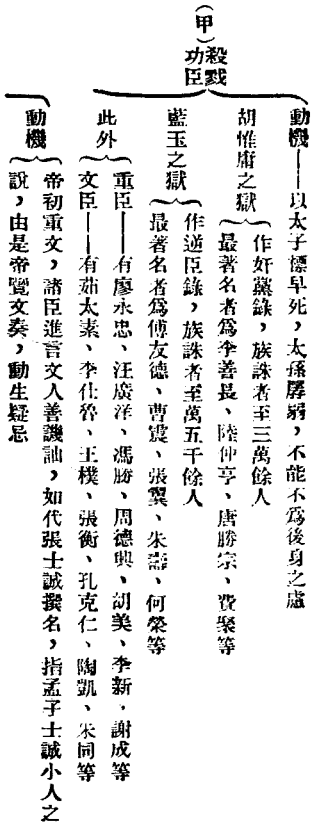 （甲）殺戮功臣
動機——以太子標早死，太孫孱弱，不能不爲後身之慮
胡惟庸之獄
作奸黨錄，族誅者至三萬餘人
最著名者爲李善長、陸仲亨、唐勝宗、費聚等
藍玉之獄
作逆臣錄，族誅者至萬五千餘人
最著名者爲傅友德、曹震、張翼、朱壽、何榮等
此外
重臣——有廖永忠、汪廣洋、馮勝、周德興、胡美、李新、謝成等
文臣——有茹太素、李仕魯、王樸、張衡、孔克仁、陶凱、朱同等
動機
帝初重文，諸臣進言文人善譏訕，如代張士誠撰名，指孟子士誠小人之
說，由是帝覽文奏，動生疑忌